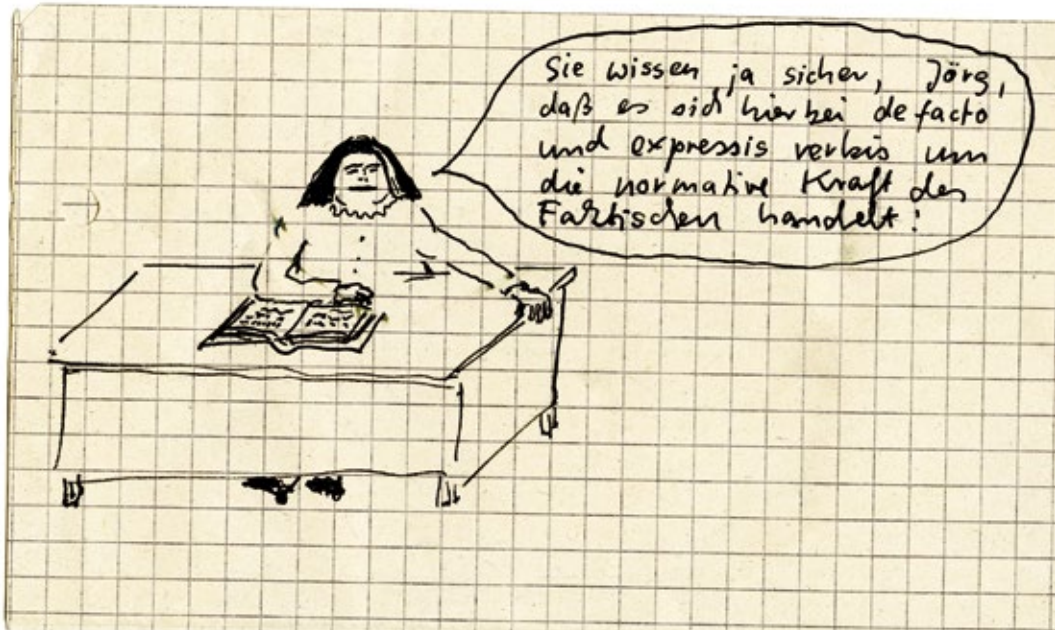 Sie wissen ja sicher, Jörg,
daß es sich hierbei de facto
und expressis verbis um
die normative Kraft des
Faktischen handelt!